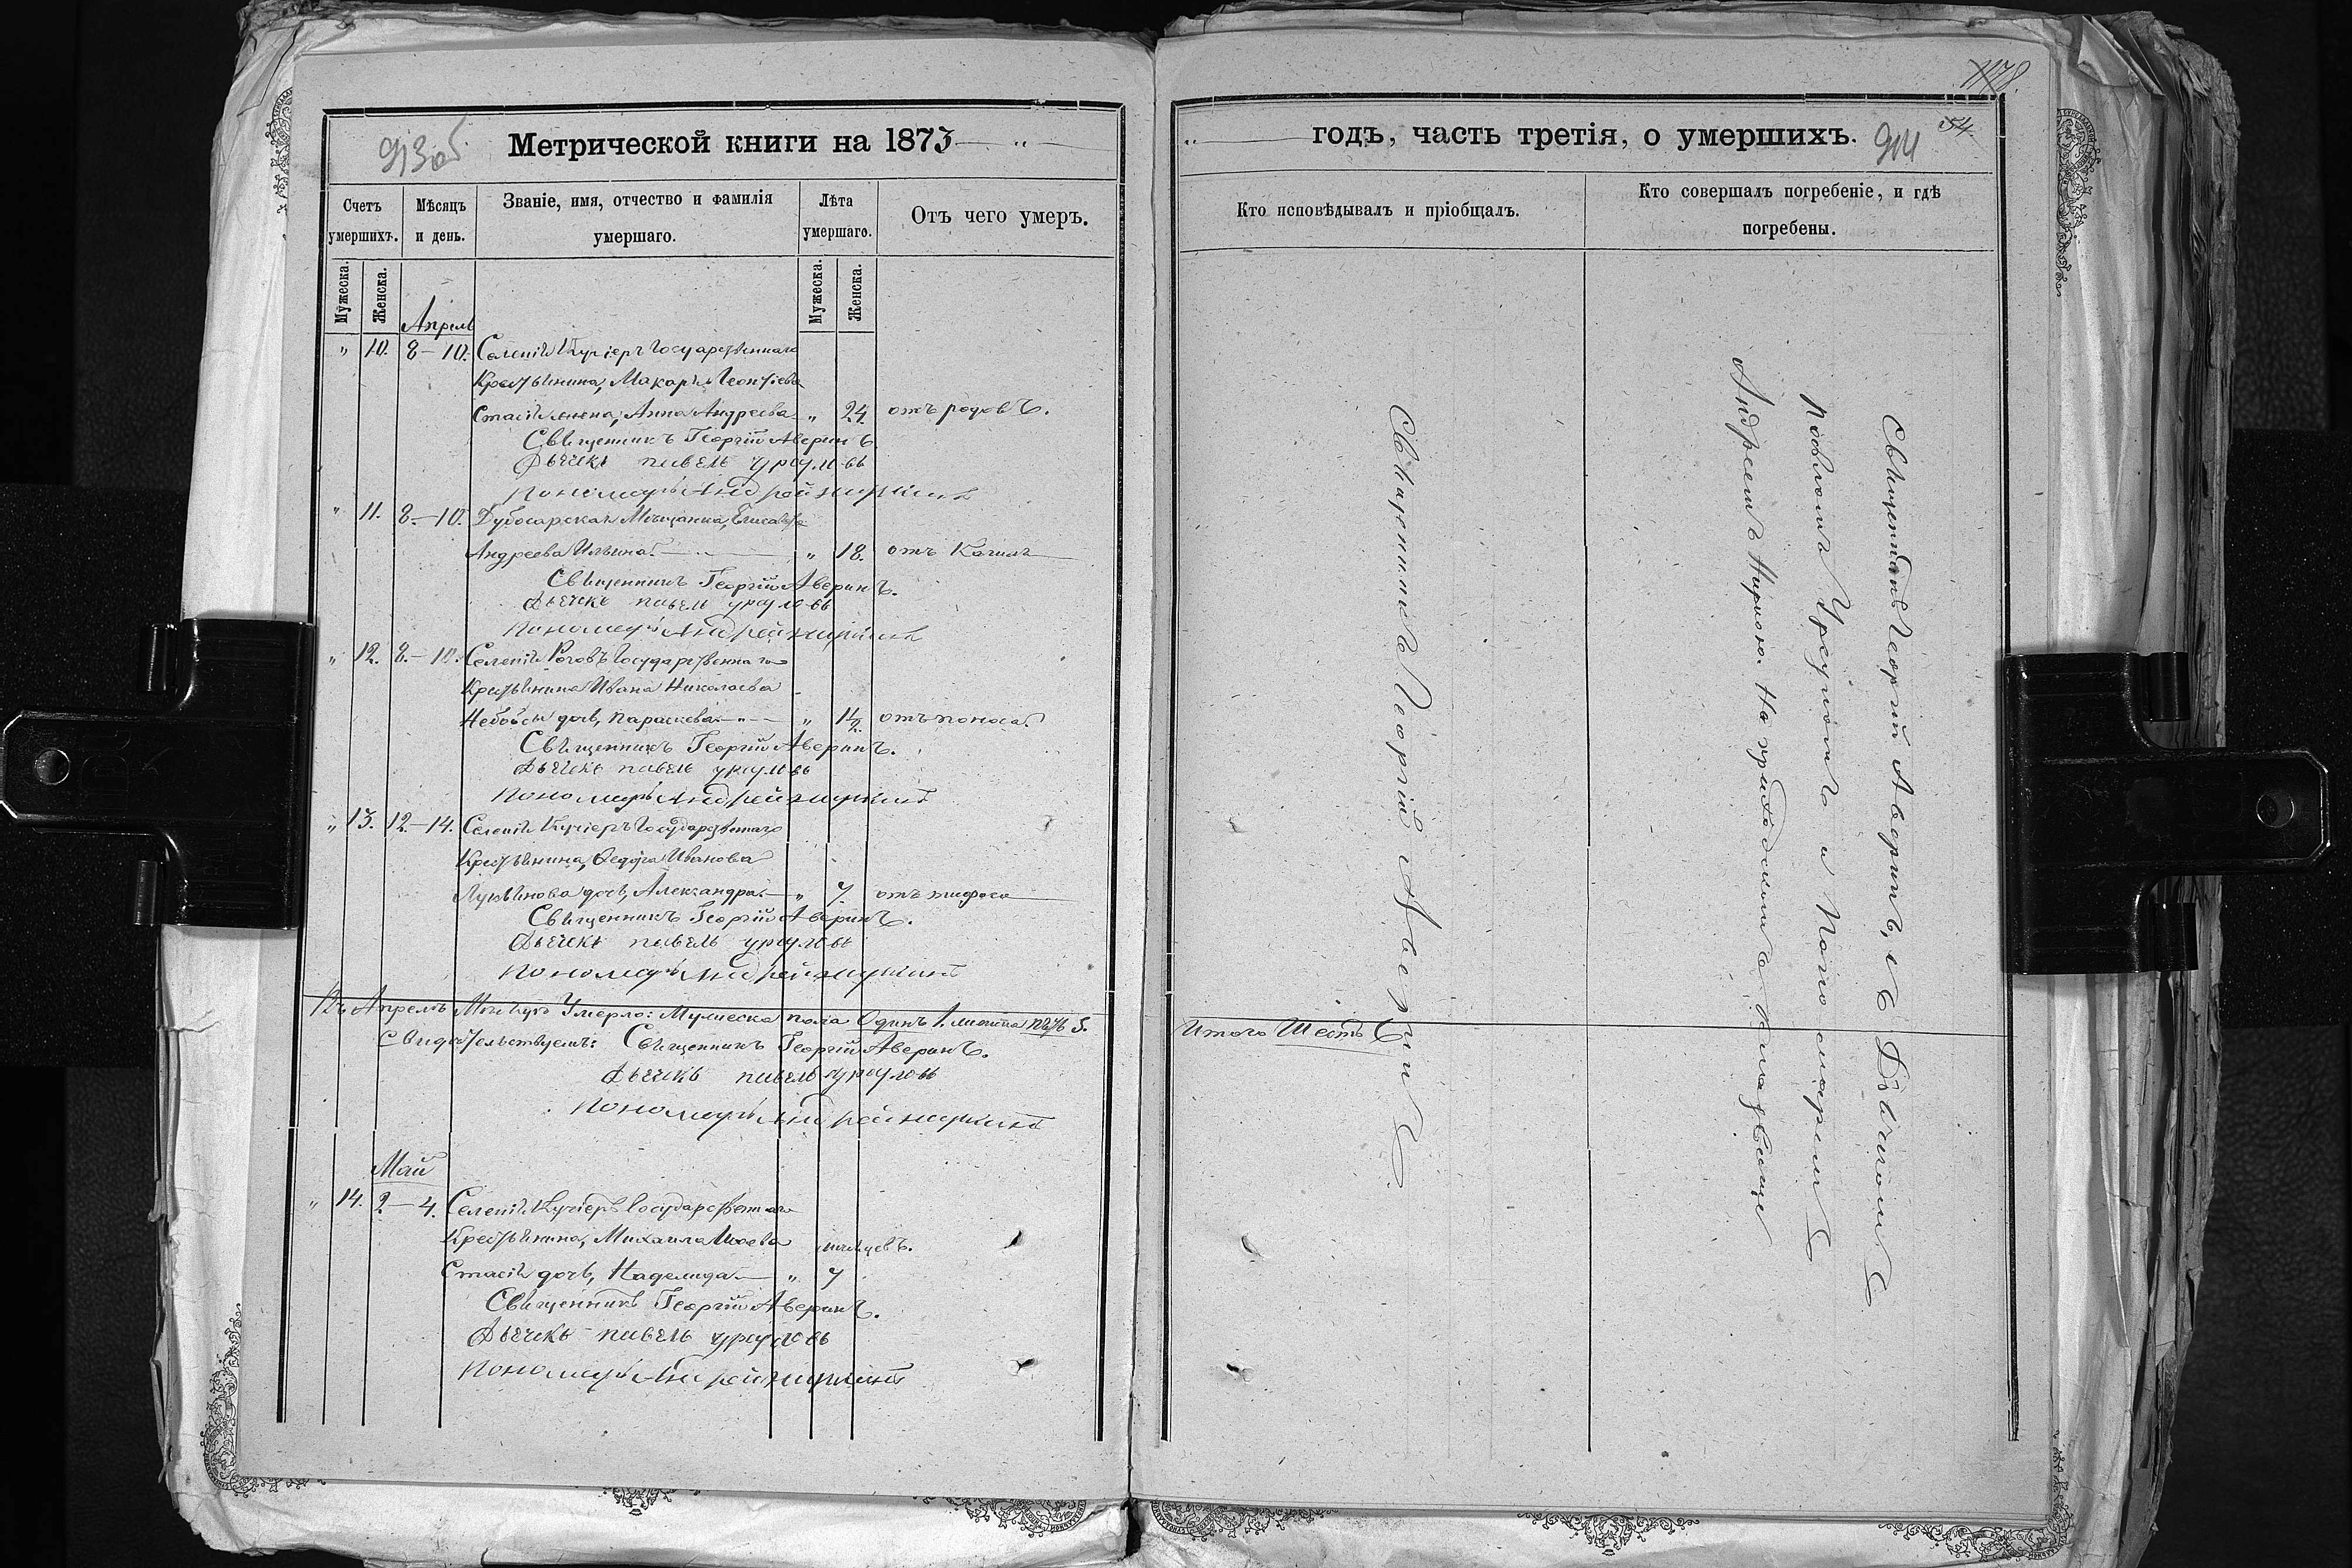 913об
Метрической книги на 1873 — „ —
Счетъ умершихъ.
Мѣсяцъ и день.
Званіе, имя, отчество и фамилія умершаго.
Лѣта умершаго.
Отъ чего умеръ.
Мужеска.
Женска.
Мужеска.
Женска.
Апрель
„ 10. 8—10. Селенія Кучіеръ Государственнаго
Крестьянина, Макарія Леонтіева
Стасія жена, Анна Андреева „ 24 отъ родовъ.
Священникъ Георгій Аверинъ
Дьячекъ павелъ урсуловъ
Пономарь Андрей
„ 11. 8—10. Дубосарская Мѣщанка, Елисавета
Андреева Ильина — „ 18. отъ Кашля
Священникъ Георгій Аверинъ.
Дьячекъ павелъ урсуловъ
Пономарь Андрей
„ 12. 8—10. Селенія Роговъ Государственнаго
Крестьянина Ивана Николаева
дочь, Параскева — „ — „ 1½ отъ поноса
Священникъ Георгій Аверинъ.
Дьячекъ павелъ урсуловъ
Пономарь Андрей
„ 13. 12—14. Селенія Кучіеръ Государственнаго
Крестьянина, Ѳедора Иванова
Лукьянова дочь, Александра — „ 7. отъ тифоса
Священникъ Георгій Аверинъ.
Дьячекъ павелъ урсуловъ
Пономарь Андрей
Въ Апрелѣ Месяцѣ Умерло: Мужеска пола Одинъ 1. женска пять 5.
Свидѣтельствуемъ: Священникъ Георгій Аверинъ.
Дьячекъ павелъ урсуловъ
Пономарь Андрей
Май
„ 14. 2—4. Селенія Кучіеръ Государственнаго
Крестьянина, Михаила месяцевъ.
Стасія дочь, Надежда — „ 7
Священникъ Георгій Аверинъ.
Дьячекъ павелъ урсуловъ
Пономарь Андрей
1178.
„ — годъ, часть третія, о умершихъ.
54
914
Кто исповѣдывалъ и пріобщалъ.
Кто совершалъ погребеніе, и гдѣ погребены.
Священникъ Георгій Аверинъ
Священникъ Георгій Аверинъ, съ Дьячкомъ
Павломъ Урсуломъ и Пономаремъ
Андреемъ На приходскомъ Кладбище
Итого Шесть 6